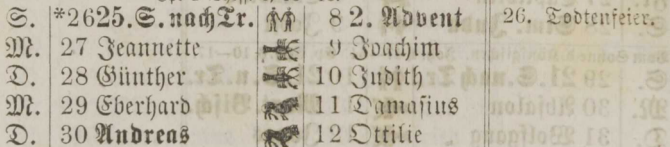 S. *26 25. S. nach Tr. 8 2. Advent 26. Todtenfeier.
M. 27 Jeannette 9 Joachim
D. 28 Günther 10 Judith
M. 29 Eberhard 11 Damasius
D. 30 Andreas 12 Ottilie